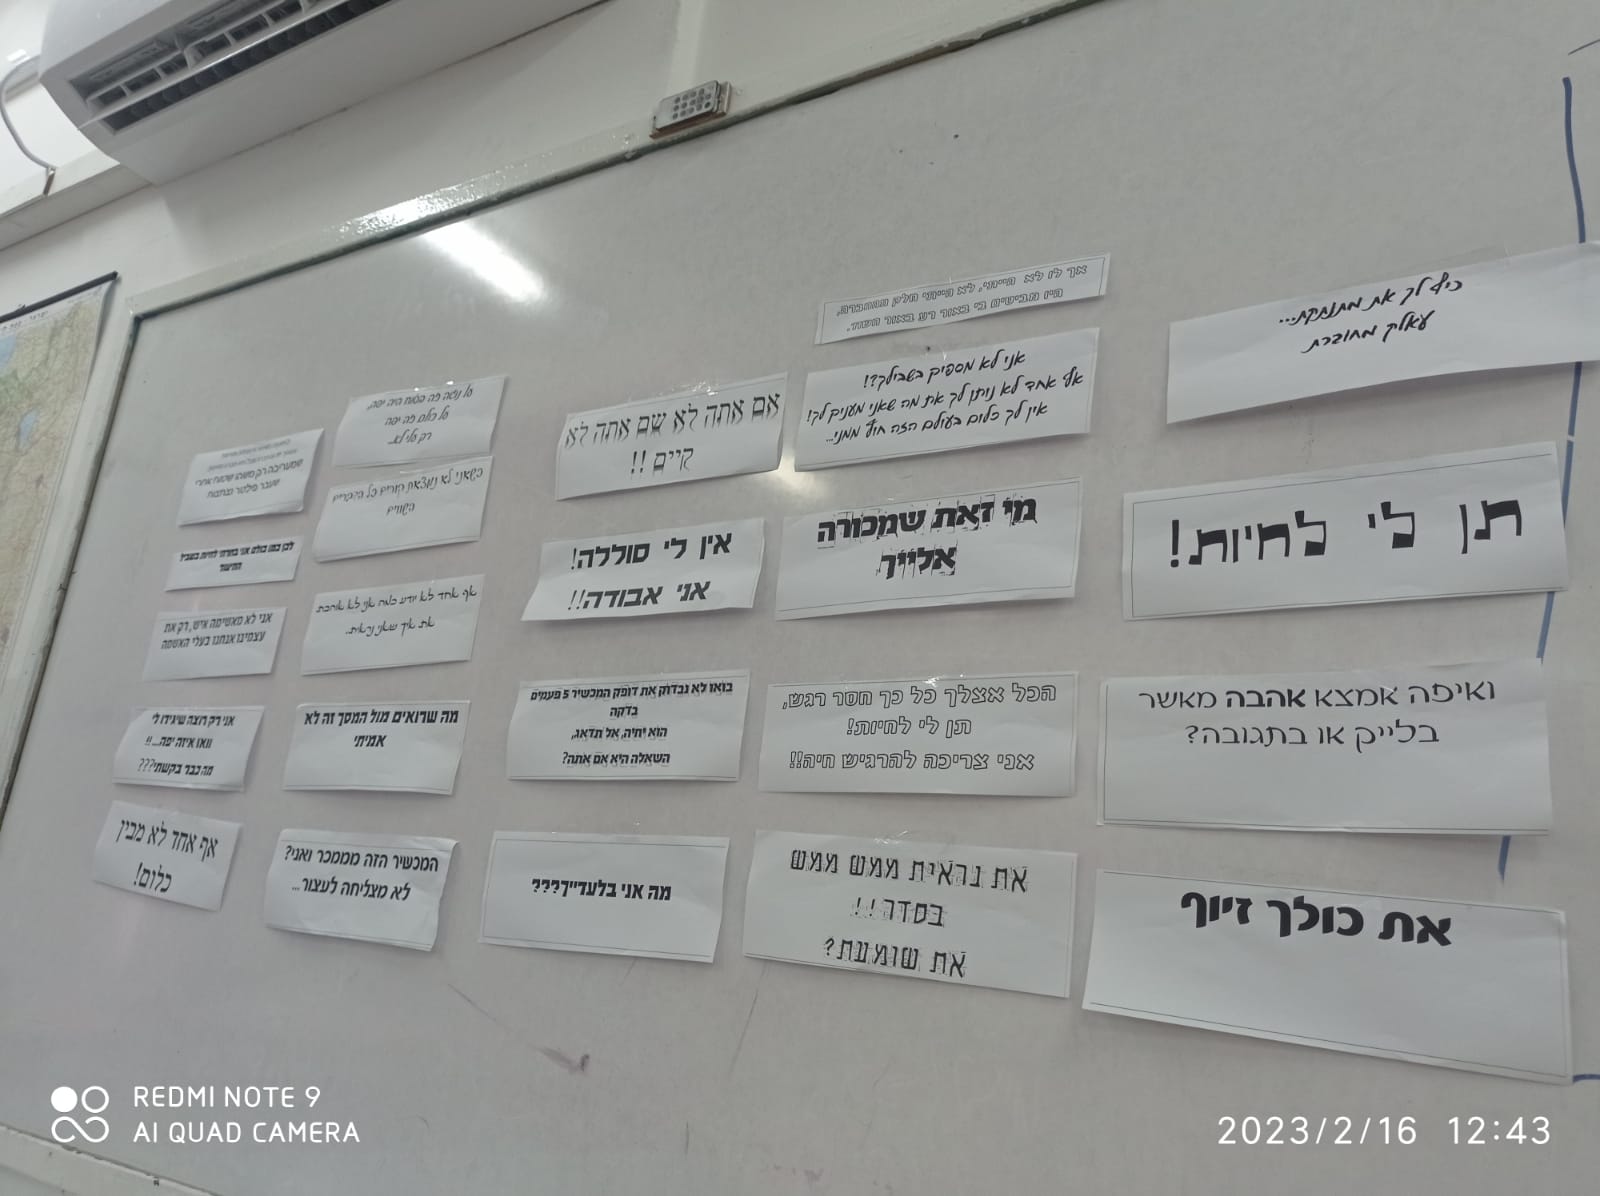 כיף לך את מתנתקת...
עאלק מחוברת
תן לי לחיות!
ואיפה אמצא אהבה מאשר
בלייק או בתגובה?
את כולך זיוף
אך לו לא הייתי, לא הייתי חלק מהחברה,
היו מביטים בי באור רע באור חשוד.
אני לא מספיק בשבילך?!
אף אחד לא נותן לך את מה שאני מעניק לך!
אין לך כלום בעולם הזה חוץ ממני...
מי זאת שמכורה
אלייך
הכל אצלך כל כך חסר רגש,
תן לי לחיות!
אני צריכה להרגיש חיה!!
את נראית ממש ממש
בסדר!!
את שומעת?
אם אתה לא שם אתה לא
קיים !!
אין לי סוללה!
אני אבודה!!
בואו לא נבדוק את דופק המכשיר 5 פעמים
בדקה
הוא יחיה, אל תדאג,
השאלה היא אם אתה?
מה אני בלעדייך???
רק לי לא..
כשאני לא נמצאת קורים כל הדברים
השווים
אף אחד לא יודע כמה אני לא אוהבת
את איך שאני נראית.
מה שרואים מול המסך זה לא
אמיתי
המכשיר הזה מממכר ואני?
לא מצליחה לעצור...
שמעריכה רק משהו שטוח אחרי
שעבר פילטר
לכן כמו כולם אני בחרתי לחיות בשביל
התיעוד
אני לא מאשימה איש, רק את
עצמינו אנחנו בעלי האשמה
אני רק רוצה שיגידו לי
וואו איזה יפה...!!
מה כבר בקשתי???
אף אחד לא מבין
כלום!
REDMI NOTE 9
AI QUAD CAMERA
2023/2/16 12:43